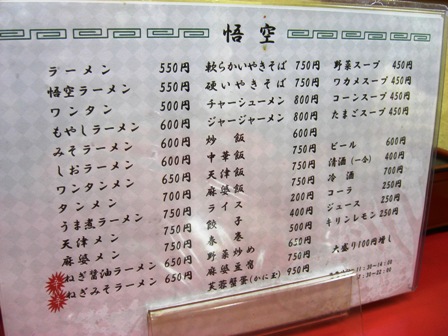 悟空
ラーメン 550円
悟空ラーメン 550円
ワンタン 500円
もやしラーメン 600円
みそラーメン 600円
しおラーメン 600円
ワンタンメン 650円
タンメン 700円
うま煮ラーメン 750円
天津メン 750円
麻婆メン 750円
ねぎ醤油ラーメン 650円
ねぎみそラーメン 650円
軟らかいやきそば 750円
硬いやきそば 750円
チャーシューメン 800円
ジャージャーメン 800円
炒飯 600円
中華飯 750円
天津飯 750円
麻婆飯 750円
ライス 200円
餃子 400円
春巻 500円
野菜炒め 650円
麻婆豆腐 750円
芙蓉蟹蛋(かに玉) 950円
野菜スープ 450円
ワカメスープ 450円
コーンスープ 450円
たまごスープ 450円
ビール 600円
清酒(一合) 400円
冷酒 700円
コーラ 250円
ジュース 250円
キリンレモン 250円
大盛り100円増し